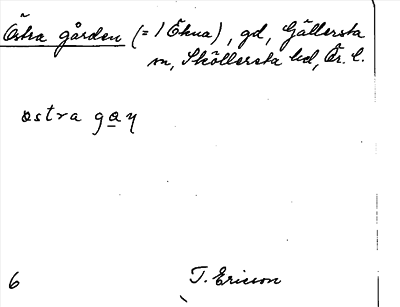 Östra gården (= 1 Ökna), gd, Gällersta
sn, Sköllersta hd, Ör. l.
östra ga̱ɳ
6
T. Ericson